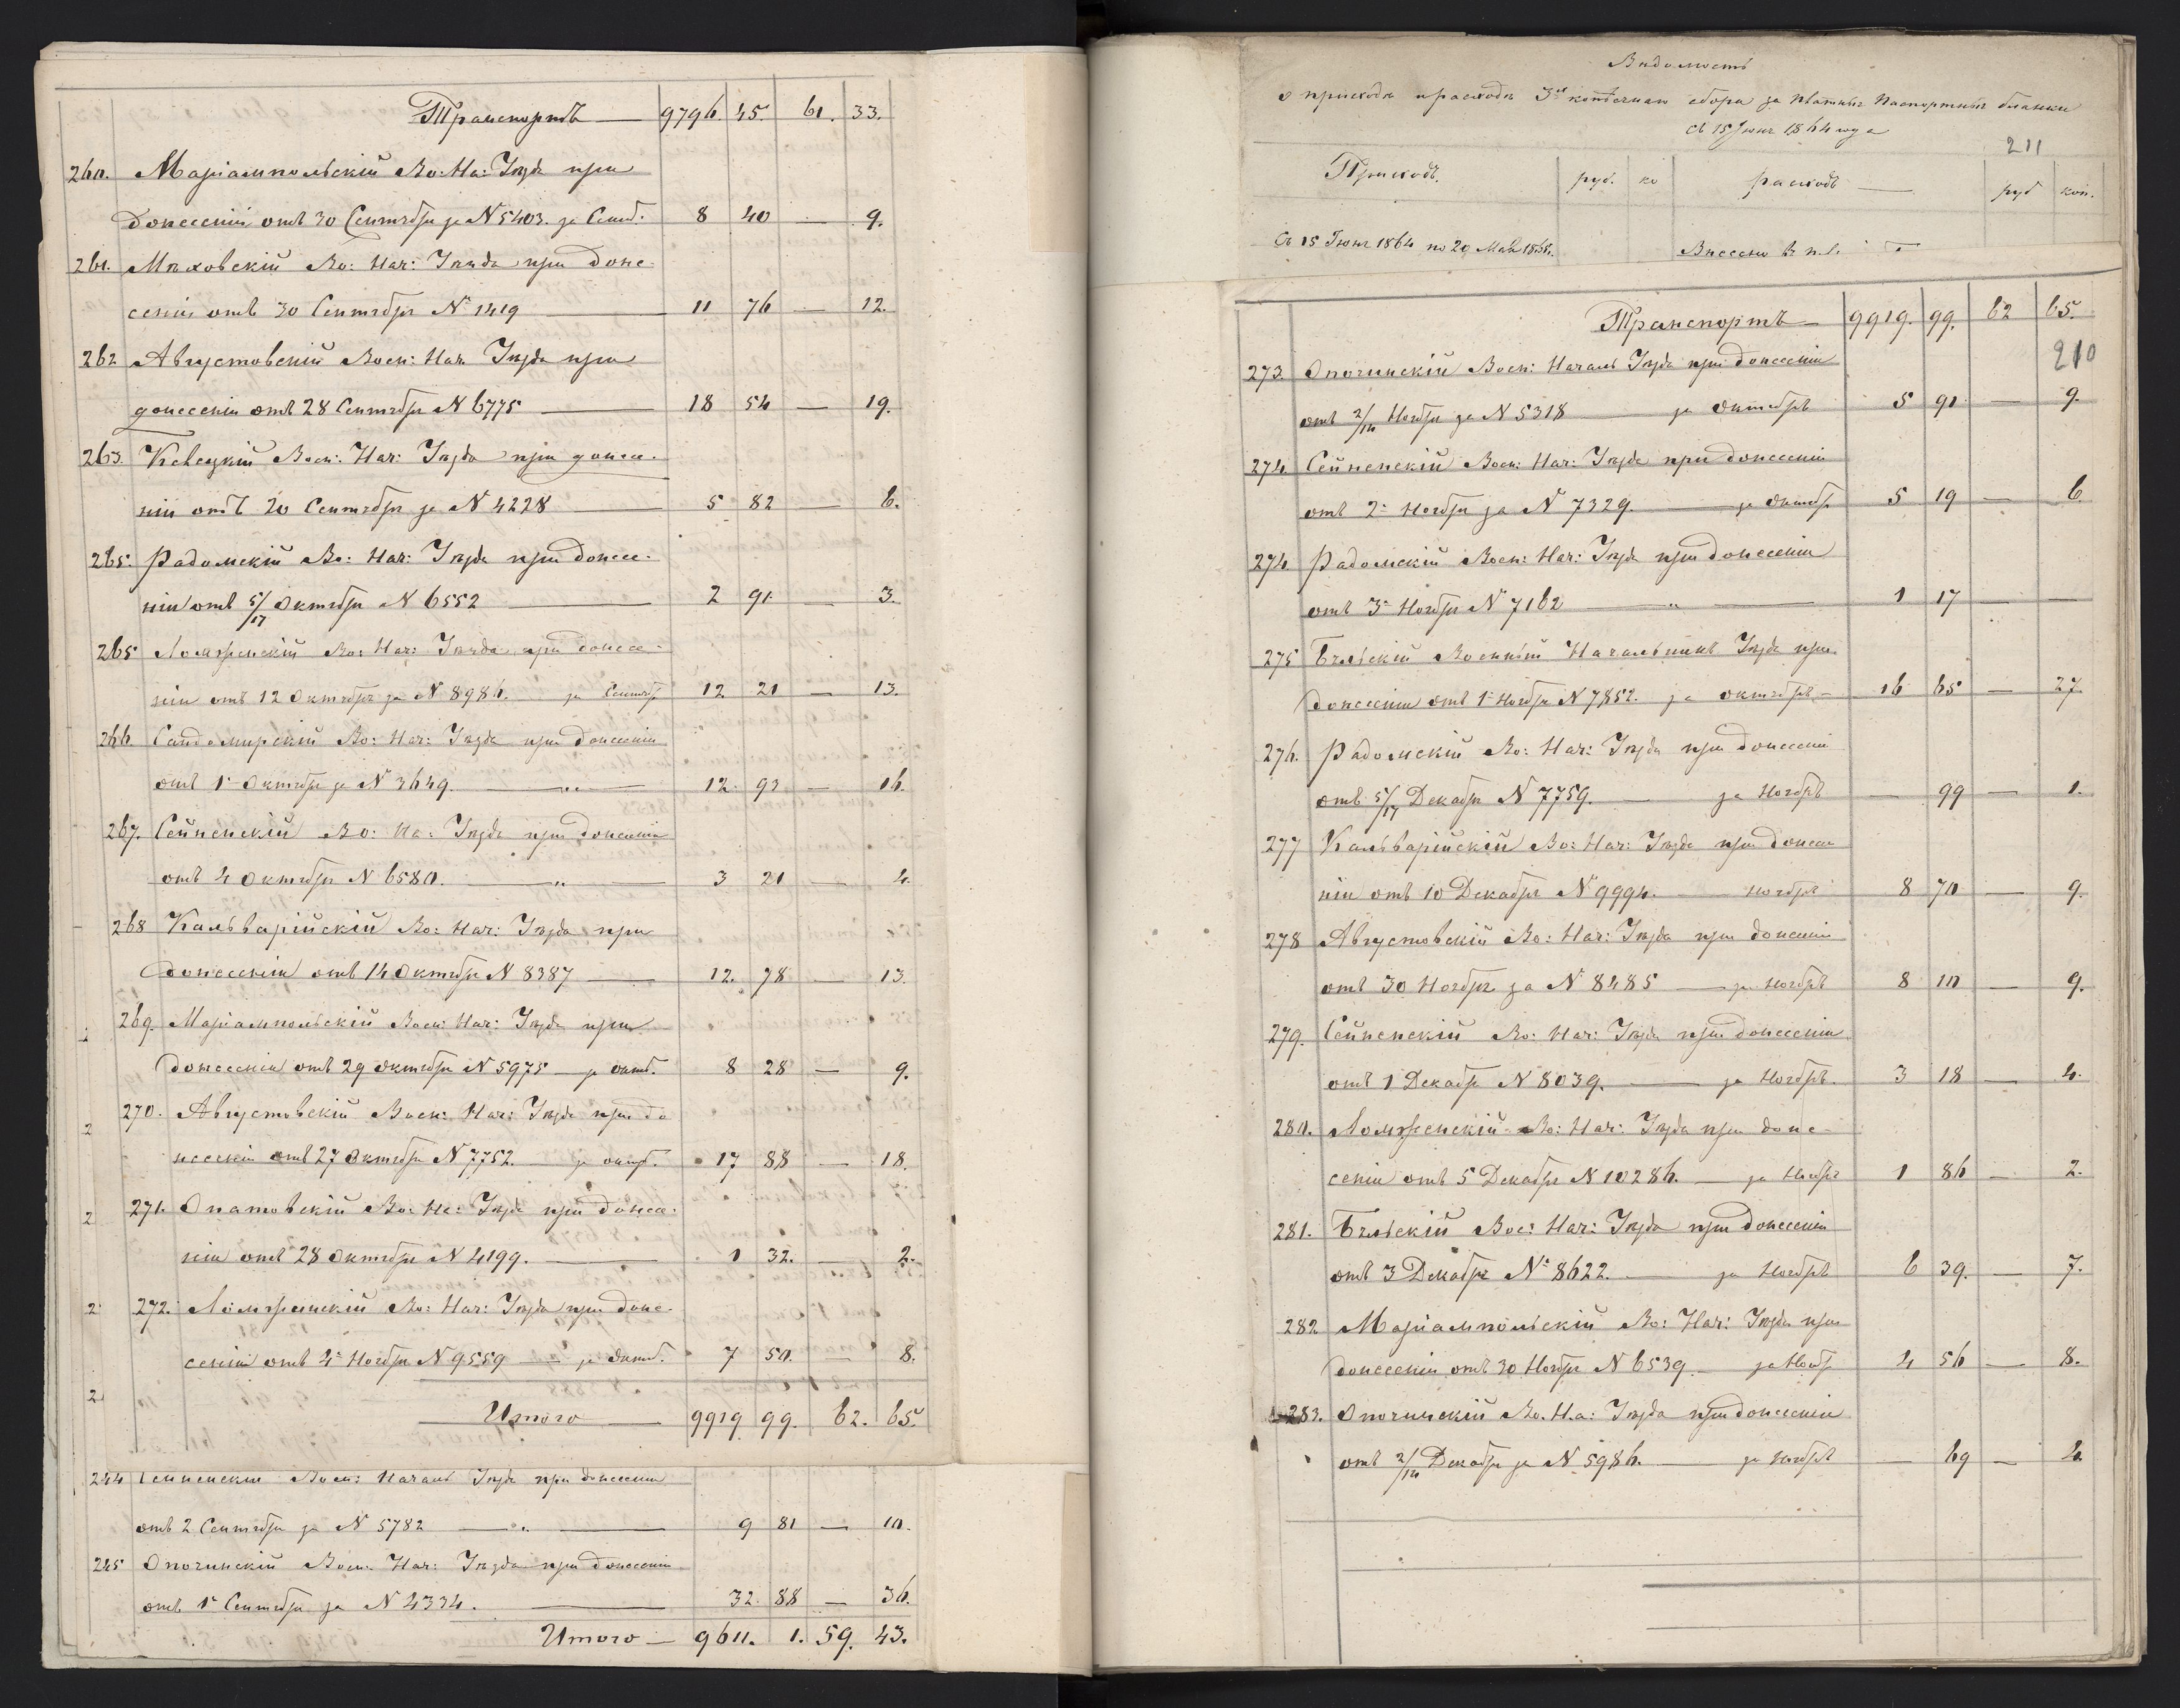 Транспортъ — 9796 45. 61. 33.
260. Маріампольскій Во: На: Уѣзда при
донесеніи отъ 30 Сентября за N 5403. за Сент. 8 40 — 9.
261. Мѣховскій Во: Нач: Уѣзда при доне-
сеніи отъ 30 Сентября N 1419 — 11 76 — 12.
262 Августовскій Воен: Нач. Уѣзда при
донесеніи отъ 28 Сентября N 6775 — 18 54 — 19.
263. Кѣлецкій Воен: Нач: Уѣзда при донесе-
ніи отъ 20 Сентября за N 4228 — 5 82 — 6.
265. Радомскій Во: Нач: Уѣзда при донесе-
ніи отъ 5/17 Октября N 6552 — 2 91 — 3.
265 Ломженскій Во: Нач: Уѣзда при донесе-
ніи отъ 12 Октября за N 8986. — за Сентяб 12 21 — 13.
266. Сандомирскій Во: Нач: Уѣзда при донесеніи
отъ 1 Октября за N 3649. — „ — 12. 93 — 16.
267. Сейненскій Во: На: Уѣзда при донесеніи
отъ 4 Октября N 6580. — „ — 3 21 — 4.
268 Кальварійскій Во: Нач: Уѣзда при
донесеніи отъ 14 Октября N 8387 — 12. 78 — 13.
269. Маріампольскій Воен: Нач: Уѣзда при
донесеніи отъ 29 Октября N 5975 — за Октб. 8 28 — 9.
270. Августовскій Воен: Нач: Уѣзда при до
несеніи отъ 27 Октября N 7752. — за октб. 17 88 — 18.
271. Опатовскій Во: На: Уѣзда при донесе-
ніи отъ 28 Октября N 4199. — 1 32. — 2.
272. Ломженскій Во: Нач: Уѣзда при доне-
сеніи отъ 4 Ноября N 9559 — за Октб. 7 50. — 8.
Итого — 9919 99. 62. 65.
244 Сейненскій Воен: Началь Уѣзда при донесеніи
отъ 2 Сентября за N 5782 — „ — 9 81 — 10.
245 Опочинскій Воен. Нач: Уѣзда при донесеніи
отъ 1 Сентября за N 4334. — 32 88 — 36.
Итого — 9611. 1. 59. 43.
Вѣдомость
о приходѣ и расходѣ 3хъ копѣечнаго сбора за платныя паспортныя бланки
съ 15 Іюня 1864 года
211
Приходъ. руб. ко расходъ — руб коп.
Съ 15 Іюня 1864 по 20 Мая Внесено въ
Транспортъ — 9919. 99. 62 65.
210
273. Опочинскій Воен: Началь Уѣзда при донесеніи
отъ 2/14 Ноября за N 5318 — за Октябрь 5 91 — 9.
274. Сейненскій Воен: Нач: Уѣзда при донесеніи
отъ 2 Ноября за N 7329. — за Октяб 5 19 — 6
274 Радомскій Воен: Нач: Уѣзда при донесеніи
отъ 3 Ноября N 7162 — „ — 1 17 — —
275 Бѣльскій Военный Начальникъ Уѣзда при
донесеніи отъ 1 Ноября N 7852. за октябрь — 16 65 — 27.
276. Радомскій Во: Нач: Уѣзда при донесеніи
отъ 5/17 Декабря N 7759. — за Ноябрь — 99 — 1.
277 Кальварійскій Во: Нач: Уѣзда при донесе
ніи отъ 10 Декабря N 9994. — Ноябрь 8 70 — 9.
278 Августовскій Во: Нач: Уѣзда при донесеніи
отъ 30 Ноября за N 8485 — за Ноябрь 8 10 — 9.
279. Сейненскій Во: Нач: Уѣзда при донесеніи
отъ 1 Декабр N 8039. — за Ноябрь. 3 18 — 4.
280. Ломженскій Во: Нач: Уѣзда при доне-
сеніи отъ 5 Декабря N 10286. — за Ноябр 1 86 — 2.
281. Бѣльскій Вое: Нач: Уѣзда при донесеніи
отъ 3 Декабря N 8622. — за Ноябрь 6 39. — 7.
282 Маріампольскій Во: Нач: Уѣзда при
донесеніи отъ 30 Ноября N 6539. за Нояб 4 56 — 8.
283. Опочинскій Во. На: Уѣзда при донесеніи
отъ 2/14 Декабря за N 5986. — за Ноябрь — 69 —